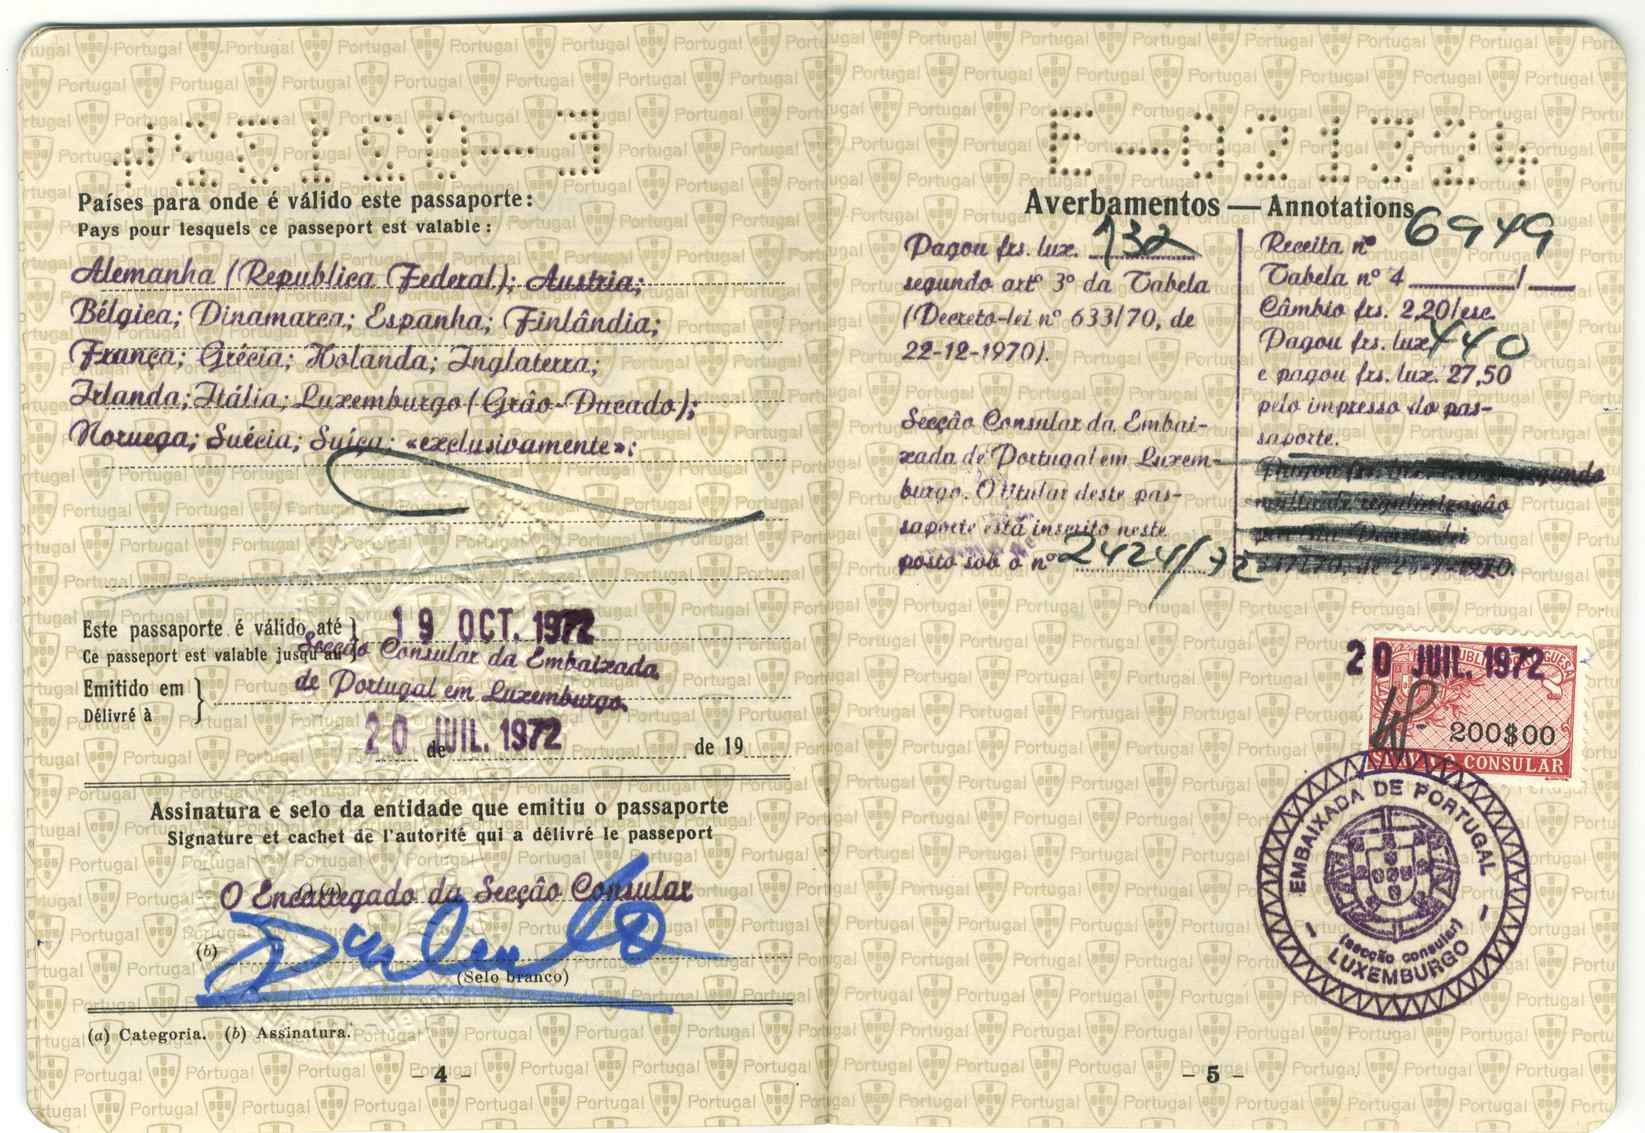 Países para onde é válido este passaporte:
Pays pour lesquels ce passeport est valable:
Alemanha (Republica Federal); Austria;
Bélgica; Dinamarca; Espanha; Finlândia;
França; Grécia; Holanda; Inglaterra;
Irlanda; Itália; Luxemburgo (Grão-Ducado);
Noruega; Suécia; Suíça; «exclusivamente»:
Este passaporte é válido até } 19 OCT. 1972
Ce passeport est valable jusqu'au
Secção Consular da Embaixada
de Portugal em Luxemburgo.
Emitido em }
Délivré à
20 JUIL. 1972
de de 19
Assinatura e selo da entidade que emitiu o passaporte
Signature et cachet de l'autorité qui a délivré le passeport
(a)
O Encarregado da Secção Consular
(b)
(Selo branco)
(a) Categoria. (b) Assinatura.
- 4 -
E-021324
Averbamentos — Annotations
Pagou frs. lux. 132
segundo artº 3º da Tabela
(Decreto-lei nº 633/70, de
22-12-1970).
Secção Consular da Embai-
xada de Portugal em Luxem-
burgo. O titular deste pas-
saporte está inscrito neste
posto sob o nº 2424/72
Receita nº 6949
Tabela nº 4 /
Câmbio frs. 2,20/esc.
Pagou frs. lux. 440
e pagou frs. lux. 27,50
pelo impresso do pas-
saporte.
20 JUIL. 1972
200$00
CONSULAR
EMBAIXADA DE PORTUGAL
(secção consular)
LUXEMBURGO
- 5 -